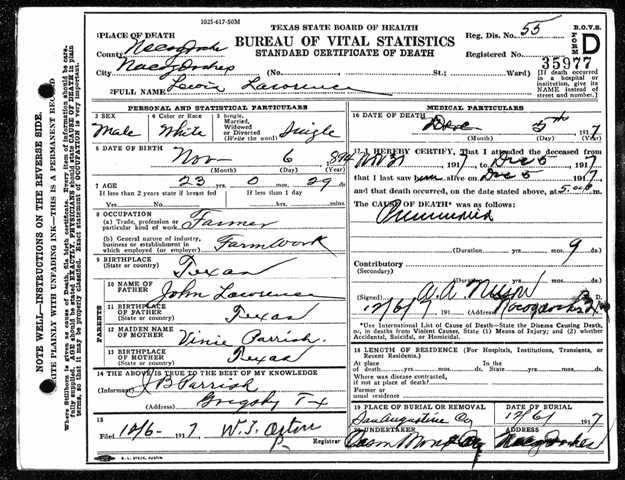 1025-617-50M
TEXAS STATE BOARD OF HEALTH
BUREAU OF VITAL STATISTICS
STANDARD CERTIFICATE OF DEATH
Reg. Dis. No. 55
Registered No. 35977
B.O.V.S.
FORM D
[If death occurred in a hospital or institution, give its NAME instead of street and number.]
1 PLACE OF DEATH
County Nacogdoches
City Nacogdoches (No. St.; Ward)
2 FULL NAME Lawrence
PERSONAL AND STATISTICAL PARTICULARS
3 SEX Male
4 Color or Race White
5 Single, Married, Widowed or Divorced (Write the word) Single
6 DATE OF BIRTH Nov 6 894
(Month) (Day) (Year)
7 AGE 23 yrs. 0 mos. 29 ds.
If less than 2 years state if breast fed
If less than 1 day
8 OCCUPATION
(a) Trade, profession or particular kind of work Farmer
(b) General nature of industry, business or establishment in which employed (or employer) Farm Work
9 BIRTHPLACE (State or country) Texas
PARENTS
10 NAME OF FATHER John Lawrence
11 BIRTHPLACE OF FATHER (State or country) Texas
12 MAIDEN NAME OF MOTHER Vinie Parrish
13 BIRTHPLACE OF MOTHER (State or country) Texas
14 THE ABOVE IS TRUE TO THE BEST OF MY KNOWLEDGE
(Informant) J B Parrish
(Address) Grigsby Tx
15
Filed 12/6- 1917 W. T.
Registrar
MEDICAL PARTICULARS
16 DATE OF DEATH Dec 5th 1917
(Month) (Day) (Year)
17 I HEREBY CERTIFY, That I attended the deceased from
1917 to Dec 5 1917
that I last saw alive on Dec 5 1917
and that death occurred, on the date stated above, at m.
The CAUSE OF DEATH* was as follows:
Pneumonia
(Duration) yrs. mos. 9 ds.
Contributory
(Secondary)
(Duration) yrs. mos. ds.
(Signed) A. A. Nelson
12/6/ 1917 (Address) Nacogdoches
*Use International List of Cause of Death—State the Disease Causing Death, or, in deaths from Violent Causes, State (1) Means of Injury; and (2) whether Accidental, Suicidal, or Homicidal.
18 LENGTH OF RESIDENCE (For Hospitals, Institutions, Transients, or Recent Residents.)
At place of death yrs. mos. ds. State yrs. mos. ds.
Where was disease contracted, if not at place of death?
Former or usual residence
19 PLACE OF BURIAL OR REMOVAL San Augustine Co
DATE OF BURIAL 12/6/ 1917
20 UNDERTAKER
ADDRESS Nacogdoches
E. L. STECK, AUSTIN
NOTE WELL—INSTRUCTIONS ON THE REVERSE SIDE.
WRITE PLAINLY WITH UNFADING INK—THIS IS A PERMANENT RECORD
Where stillborn is given as cause of Death, file birth certificate. Every item of information should be carefully supplied. AGE should be stated EXACTLY. PHYSICIANS should state CAUSE OF DEATH in plain terms, so that it may be properly classified. Exact statement of OCCUPATION is very important.